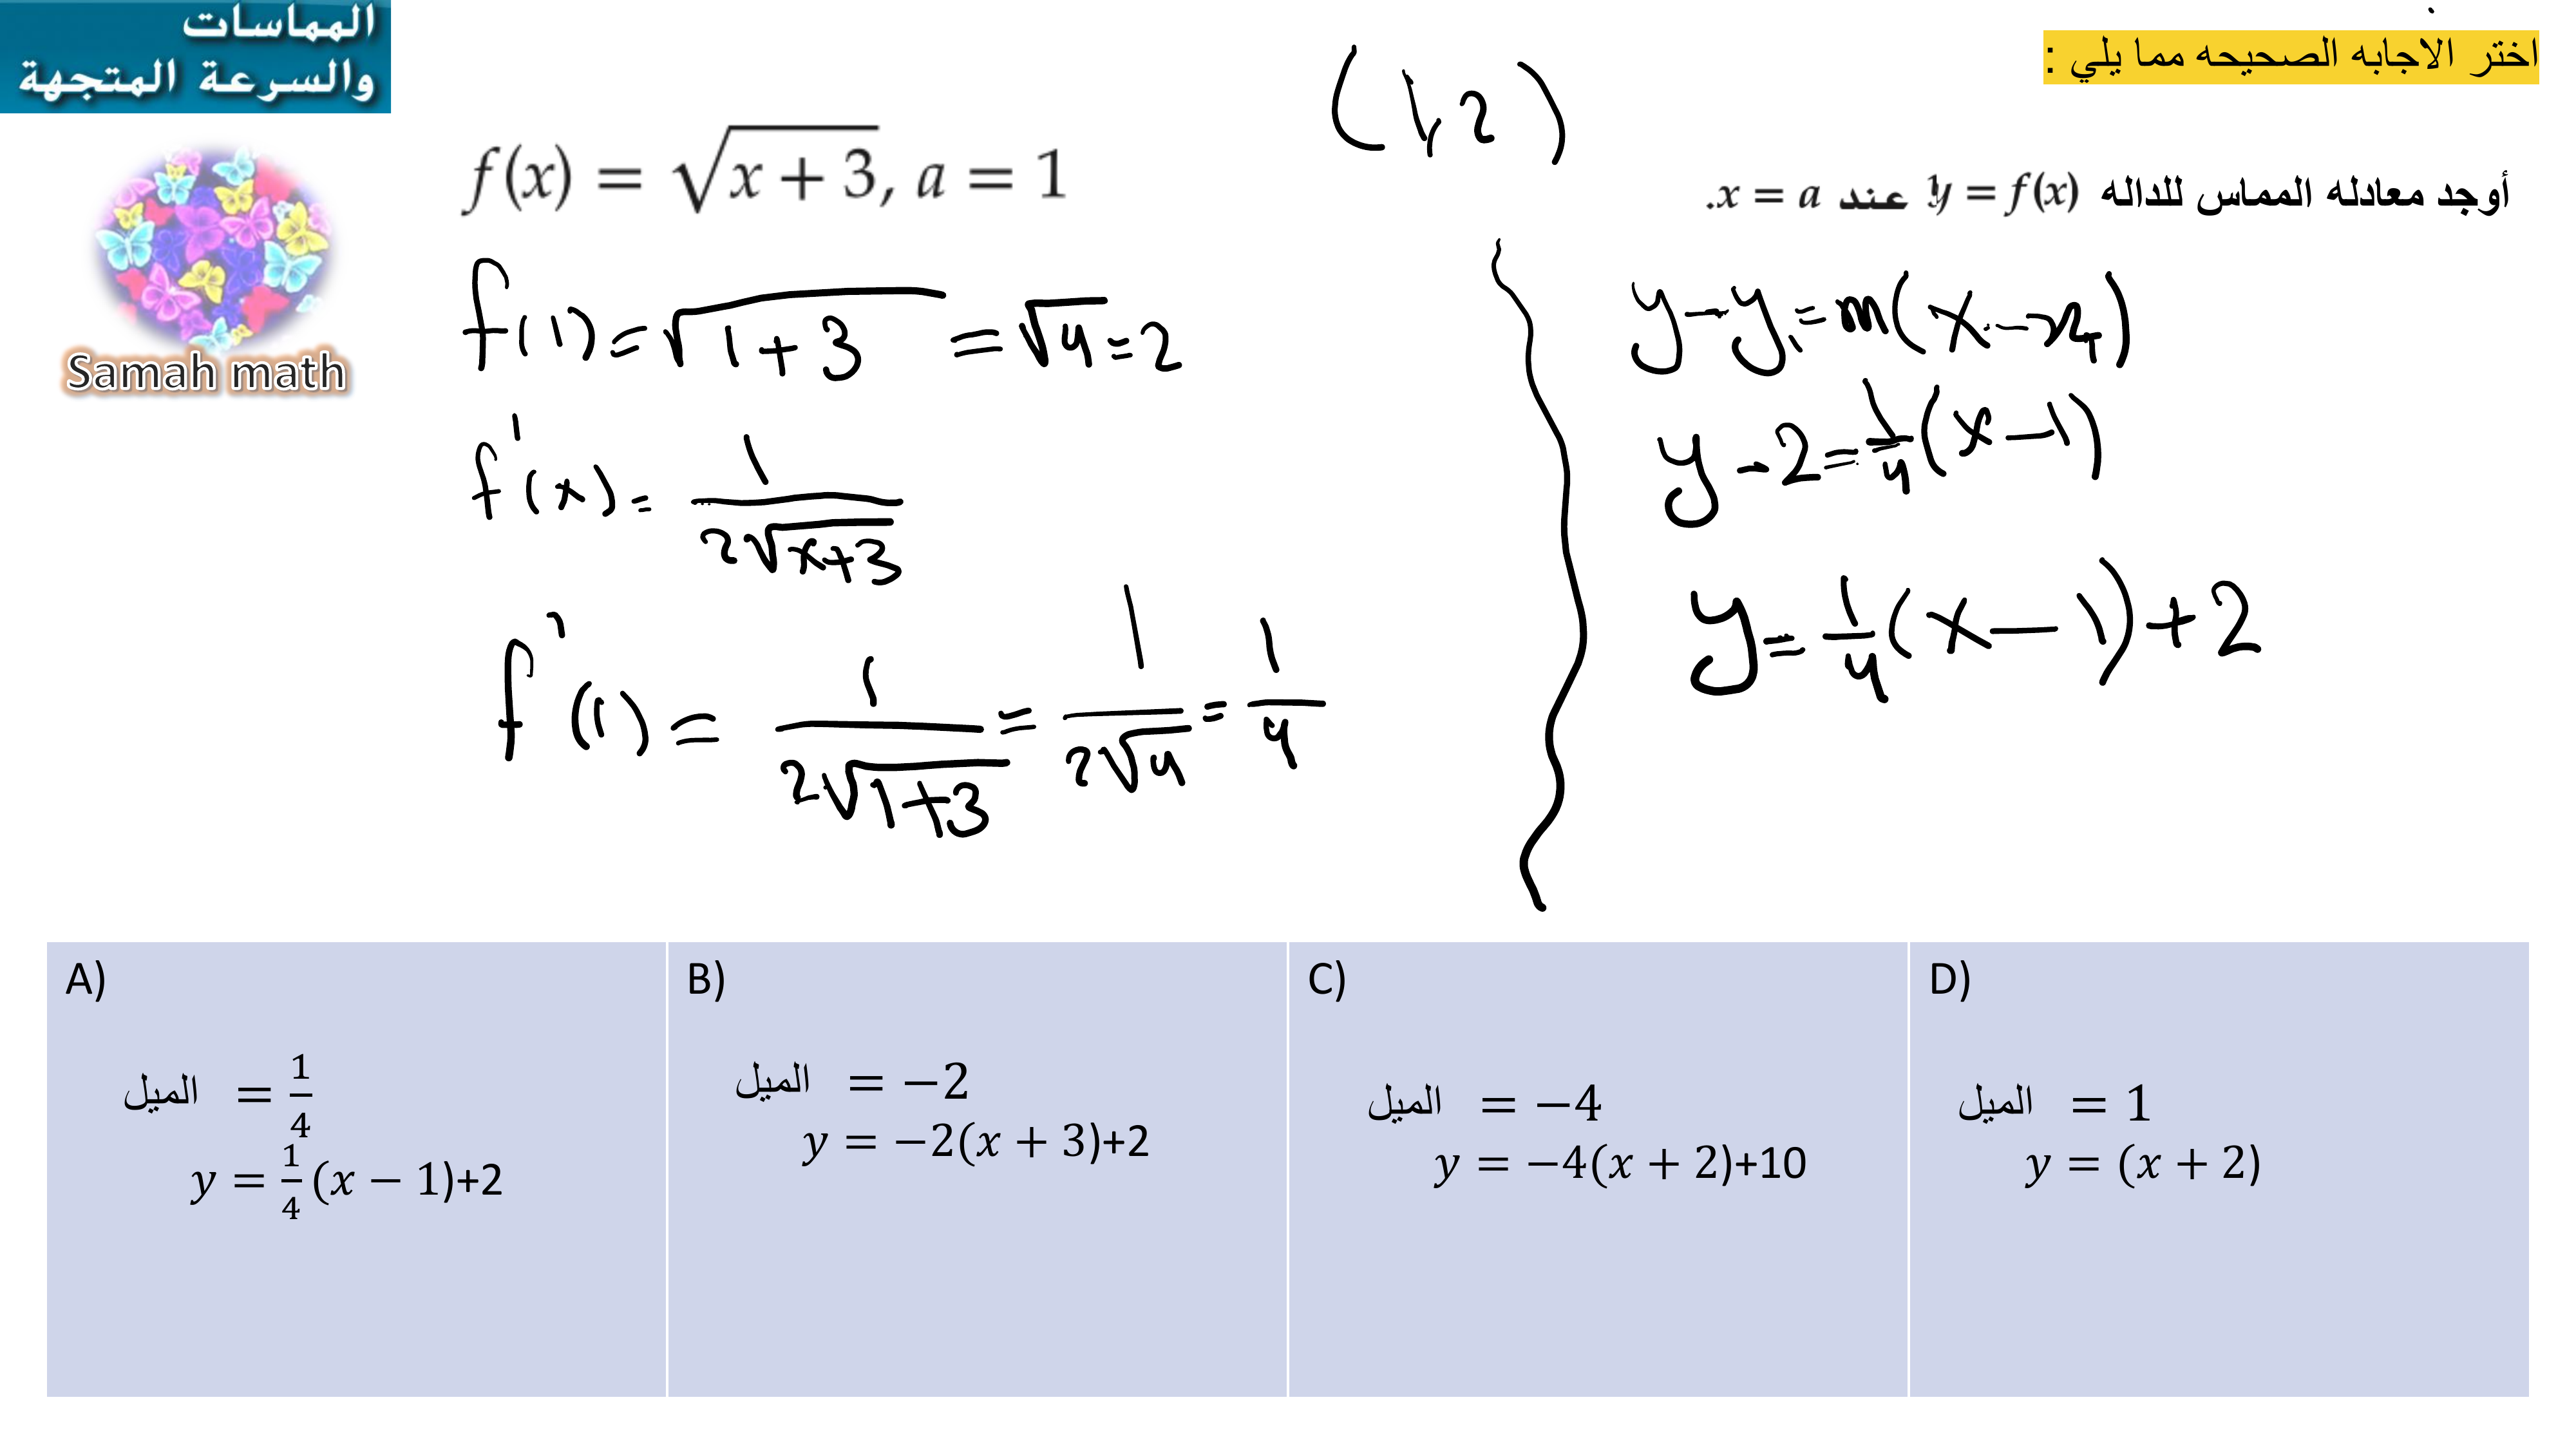 المماسات
والسرعة المتجهة
Samah math
اختر الاجابه الصحيحه مما يلي :
أوجد معادله المماس للداله y = f(x) عند x = a.
f(x) = √(x + 3), a = 1
(1,2)
f(1) = √(1+3) = √4 = 2
f'(x) = 1/(2√(x+3))
f'(1) = 1/(2√(1+3)) = 1/(2√4) = 1/4
y - y₁ = m(x - x₁)
y - 2 = 1/4 (x - 1)
y = 1/4 (x - 1) + 2
A)
الميل = 1/4
y = 1/4 (x − 1)+2
B)
الميل = −2
y = −2(x + 3)+2
C)
الميل = −4
y = −4(x + 2)+10
D)
الميل = 1
y = (x + 2)